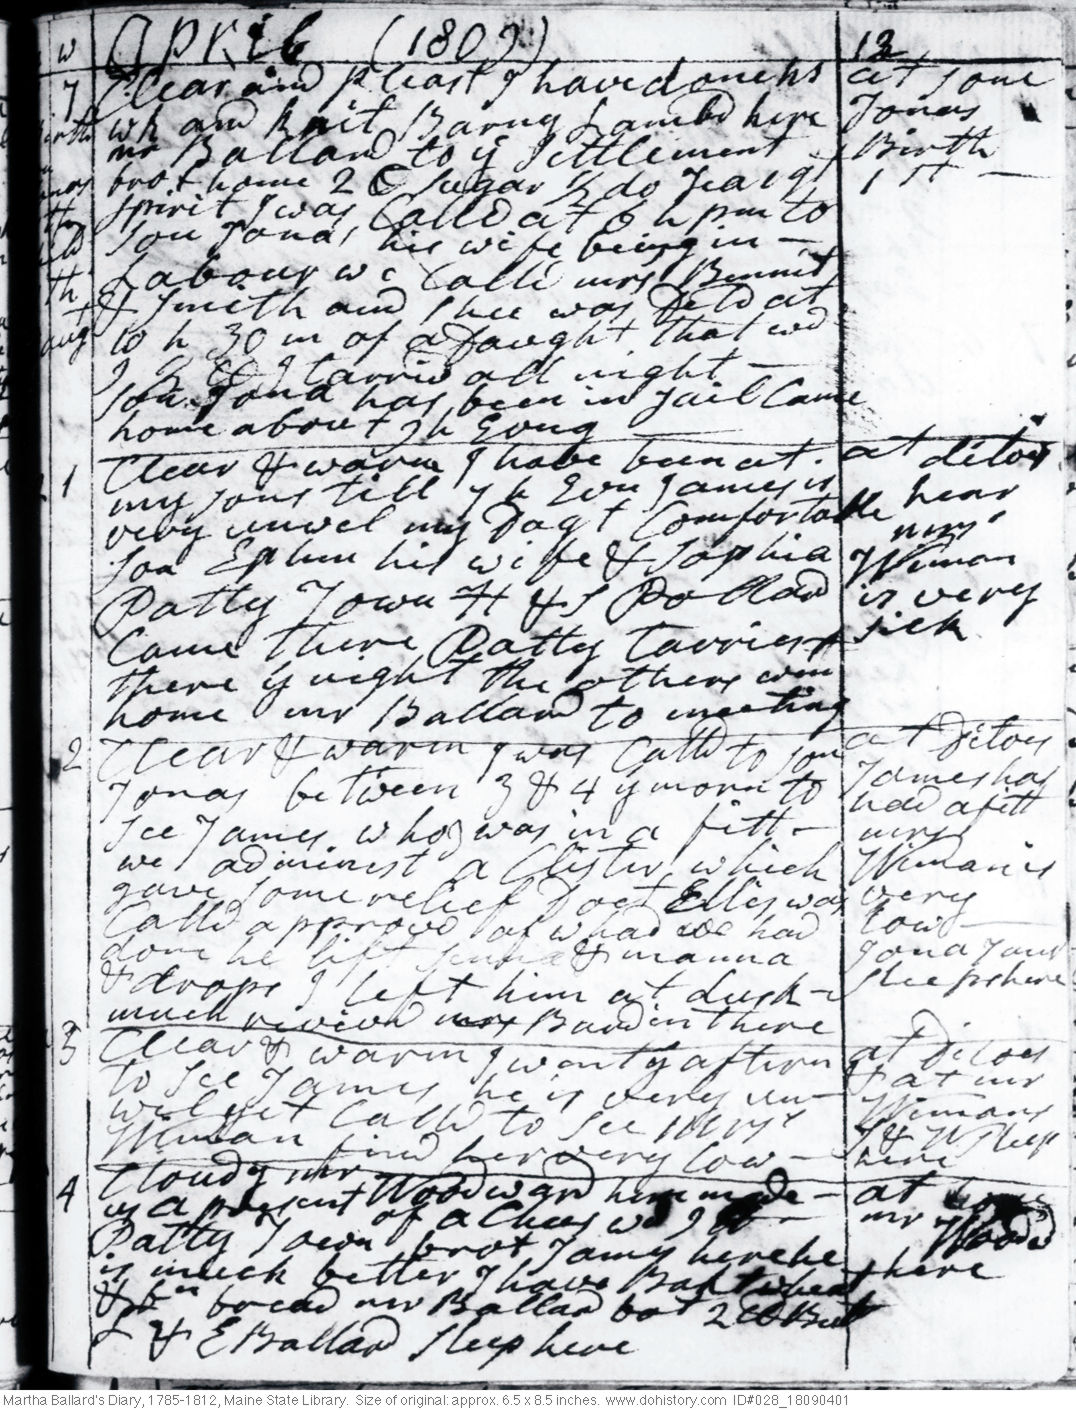 w APRIL (1809) 12
7 Clear and pleast I have done hs at sons
wk and knit Barny Lambd here Jonas
mr Ballard to ye Settlement Birth
brot home 2 lb Sugar ½ do Tea 1 qt 1st
spirit I was Calld at 6 h pm to
son Jonas his wife being in
Labour we Calld mrs Bennit
& Smith and Shee was deld at
10 h 30 m of a Daught that wd
I tarried all night
son Jona has been in Jail Came
home about 9 h Evng
1 Clear & warm I have been at at ditos
my sons till 9 h Evn James is hear
very unwel my Dagt Comfortable mrs
son Ephm his wife & Sophia Wiman
Patty Town H & S Pollard is very
Came there Patty tarries sick
there ye night the others wen
home mr Ballard to meeting
2 Clear & warm I was Calld to son at Ditoes
Jonas between 3 & 4 ye morn to James has
See James who was in a fitt had a fitt
we administ a Clister which mrs Wiman is
gave some relief Doct Ellis was very
Calld approved of what we had low
done he lift senna & manna Jona Jaur
& drops I left him at dusk Sleeps here
much revived mrs Bardin there
3 Clear & warm I went ye aftern at Ditoes
to See James he is very un & at mr
wel yet Calld to See Mrs Wimans
Wiman find her very low J & W Sleep here
4 Cloudy mr Woodward here made at home
us a present of a Chees mr Woodd
Patty Town brot Jamy here he here
is much better I have Bakt wheat
& bn bread mr Ballard bot 2 lb But
L & E Ballard Sleep here
Martha Ballard's Diary, 1785-1812, Maine State Library. Size of original: approx. 6.5 x 8.5 inches. www.dohistory.com ID#028_18090401